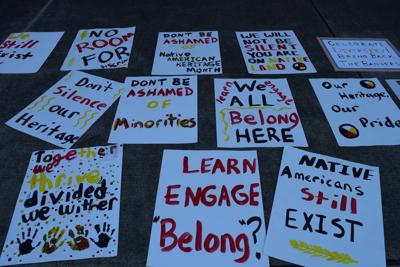 Still
Exist
NO
ROOM
FOR
DON'T BE
ASHAMED OF
Native
AMERICAN HERITAGE
MONTH
WE WILL
NOT BE
SILENT YOU
ARE ON NATIVE
LAND
CELEBRATE
BRING BACK
THE BANNERS
Don't
Silence
Our
Heritage
DON'T BE
ASHAMED
OF
Minorities
We
ALL
Belong
HERE
Our
Heritage,
Our
Pride
Together
we
thrive
divided
we wither
LEARN
ENGAGE
"Belong"?
NATIVE
Americans
Still
EXIST